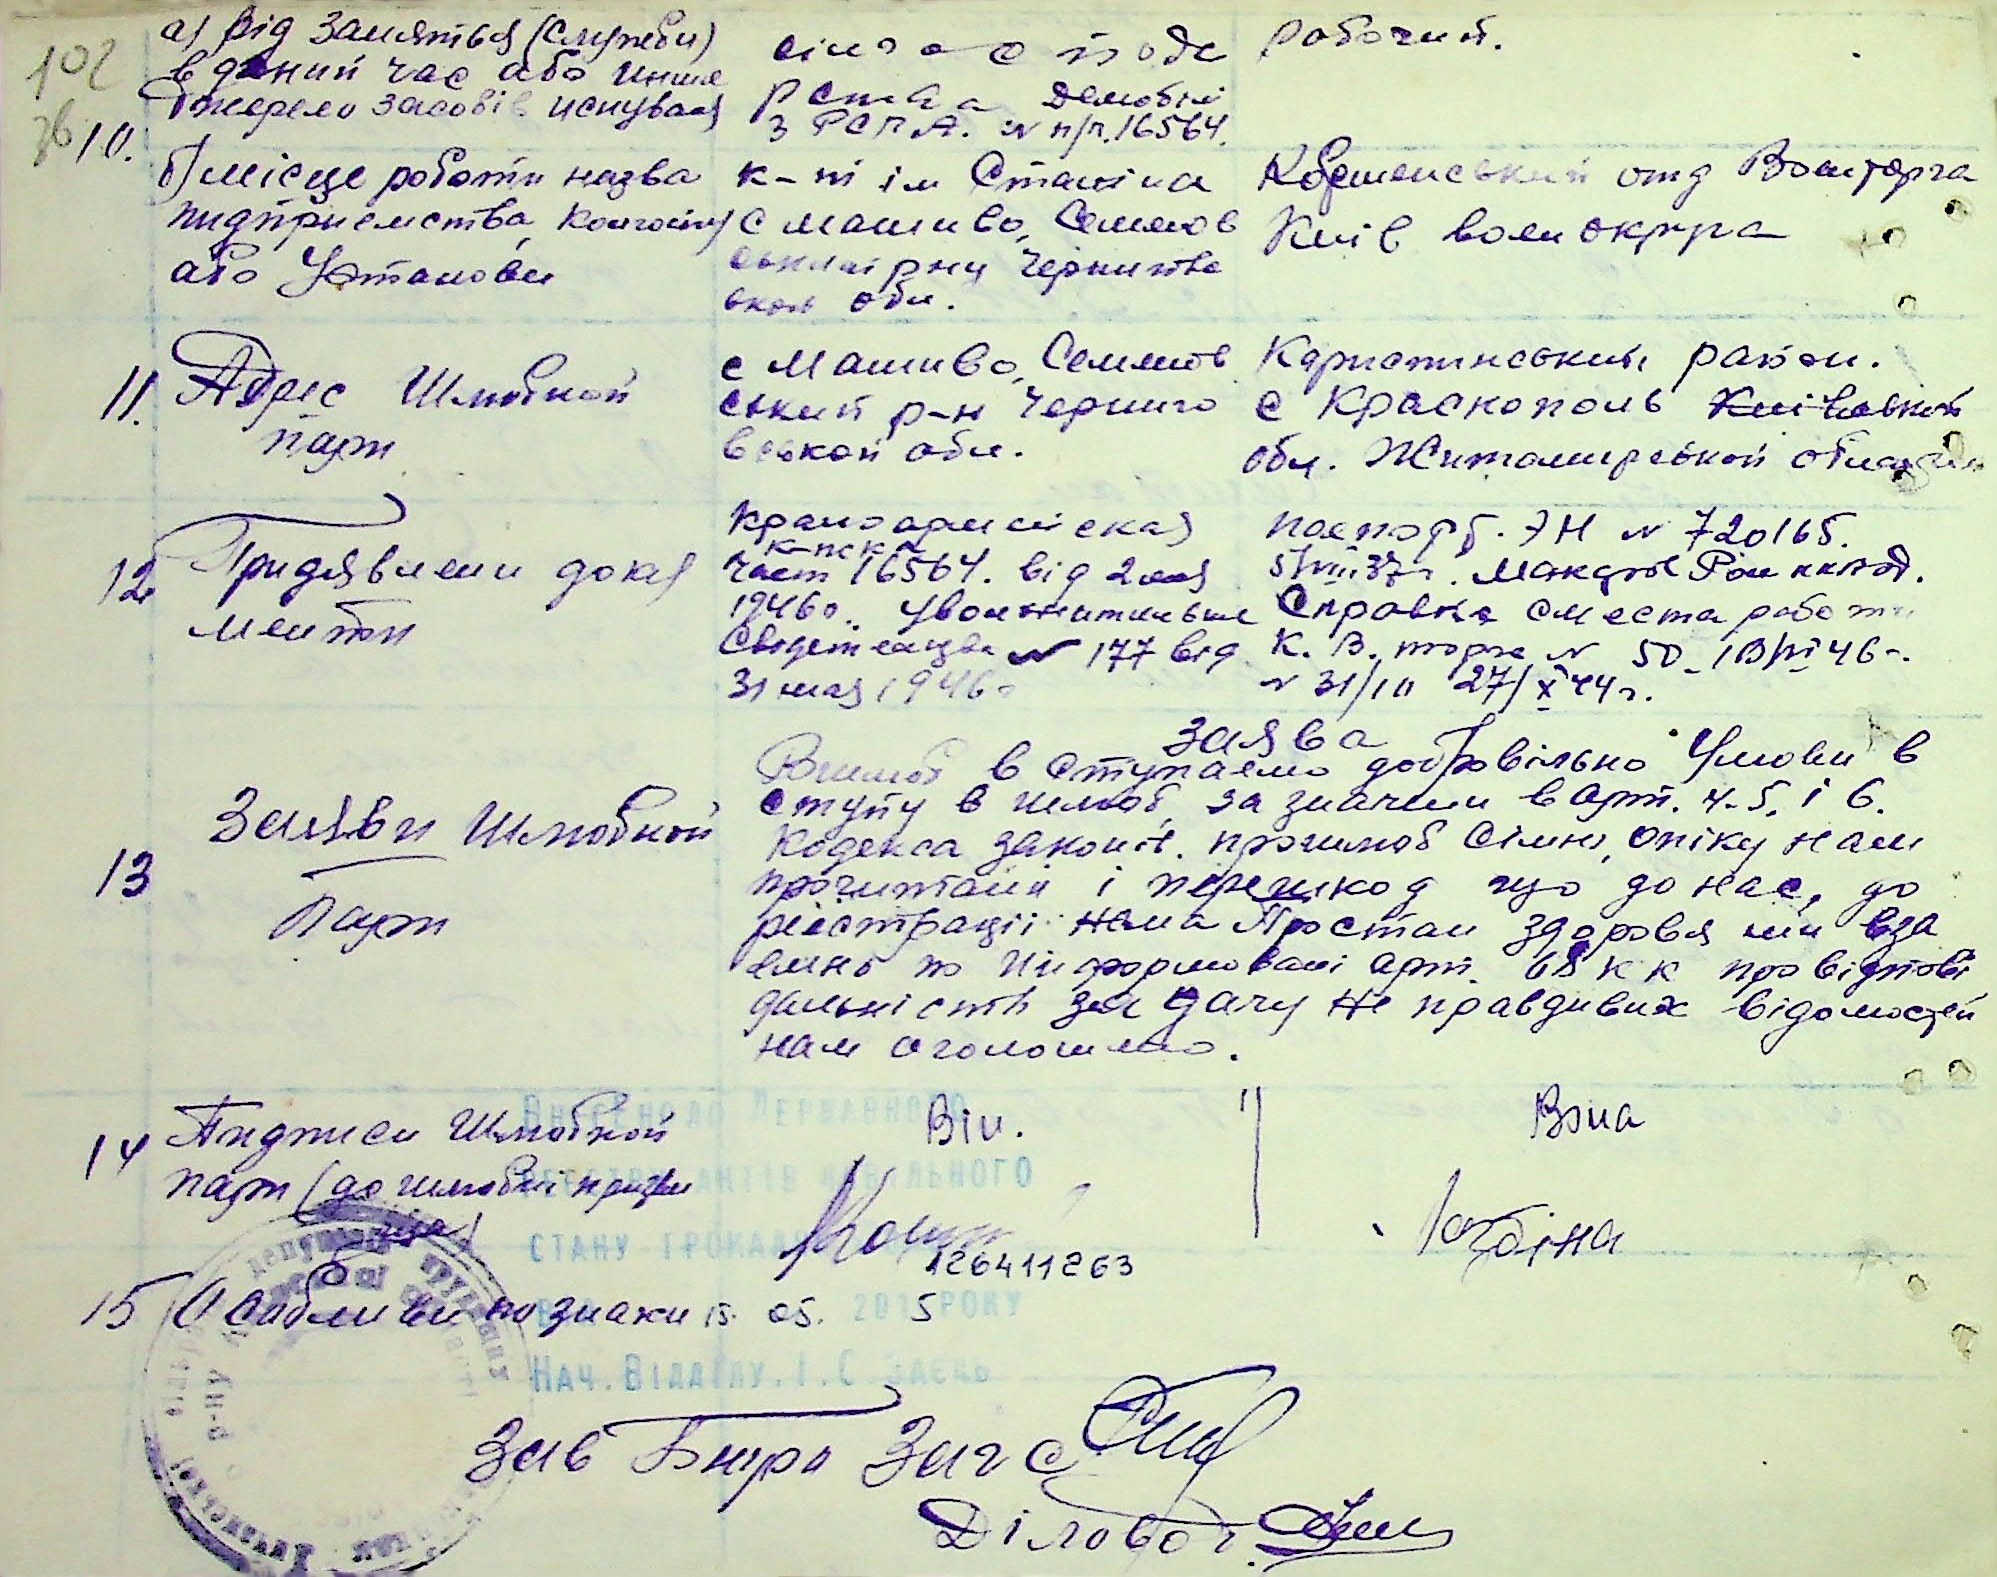 102
зв
10.
а) Від заняття (служби)
в даний час або инше
джерело засобів иснування
сільс господ
рства Демобілі
з РСПА. N п/п. 16564.
рабочий.
б) місце роботи назва
підприємства, колгоспу
або Установи
к-т ім Сталіна
с Машиво, Семенов
ський р-н Чернигов
ской обл.
отд Воєнторга
Київ воєн округа
11. Адрес Шлюбной
пари
с Машиво, Семенов
ський р-н Черниго
вської обл.
район.
с Краснополь Київської
обл. Житомирської області
12. Придявлени доку
менти
Красноармейская
к-пска
част 16564. від 2 мая
1946 г. Увольнительне
N 177 від
31 мая 1946 г
паспорт. ЭН N 720165.
Справка с места работи
К. В. торга N 50
N 31/10 27/X 44 г.
13 Заяви Шлюбной
Пари
Заява
В шлюб вступаемо добровільно Умови в
ступу в шлюб, за значени в арт. 4-5. і 6.
Кодекса законів. про шлюб сімю, опіку нам
прочитани і перешкод що до нас, до
реєстрації нема Про стан здоровя ми вза
емно по информовані арт. 68 КК про відпові
дальність за дачу не правдивих відомостей
нам оголошено.
14 Підписи Шлюбной
пари (до шлюбні призви
ща)
Він.
Вона
Внесено до Державного
реєстру актів цивільного
стану громадян
126411263
15 Особливи познаки
15. 05. 2015 року
Нач. Відділу. І. С. Заєць
Зав Бюро Загс
Діловод.